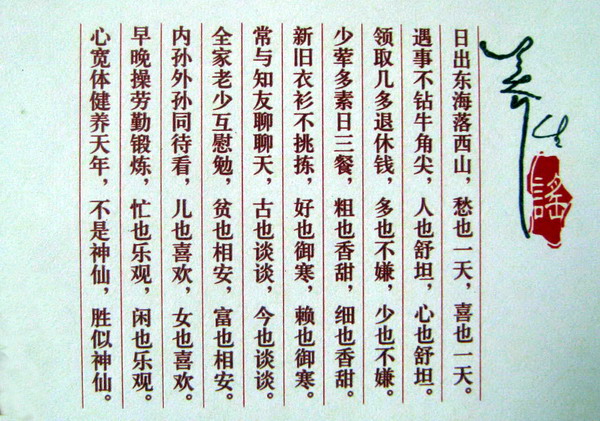 养生谣
日出东海落西山，愁也一天，喜也一天。
遇事不钻牛角尖，人也舒坦，心也舒坦。
领取几多退休钱，多也不嫌，少也不嫌。
少荤多素日三餐，粗也香甜，细也香甜。
新旧衣衫不挑拣，好也御寒，赖也御寒。
常与知友聊聊天，古也谈谈，今也谈谈。
全家老少互慰勉，贫也相安，富也相安。
内孙外孙同待看，儿也喜欢，女也喜欢。
早晚操劳勤锻炼，忙也乐观，闲也乐观。
心宽体健养天年，不是神仙，胜似神仙。